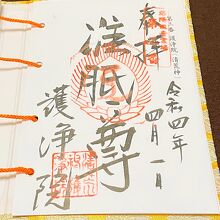 奉拝
第三番 護浄院 清荒神
准胝尊
護浄院
令和四年
四月一日